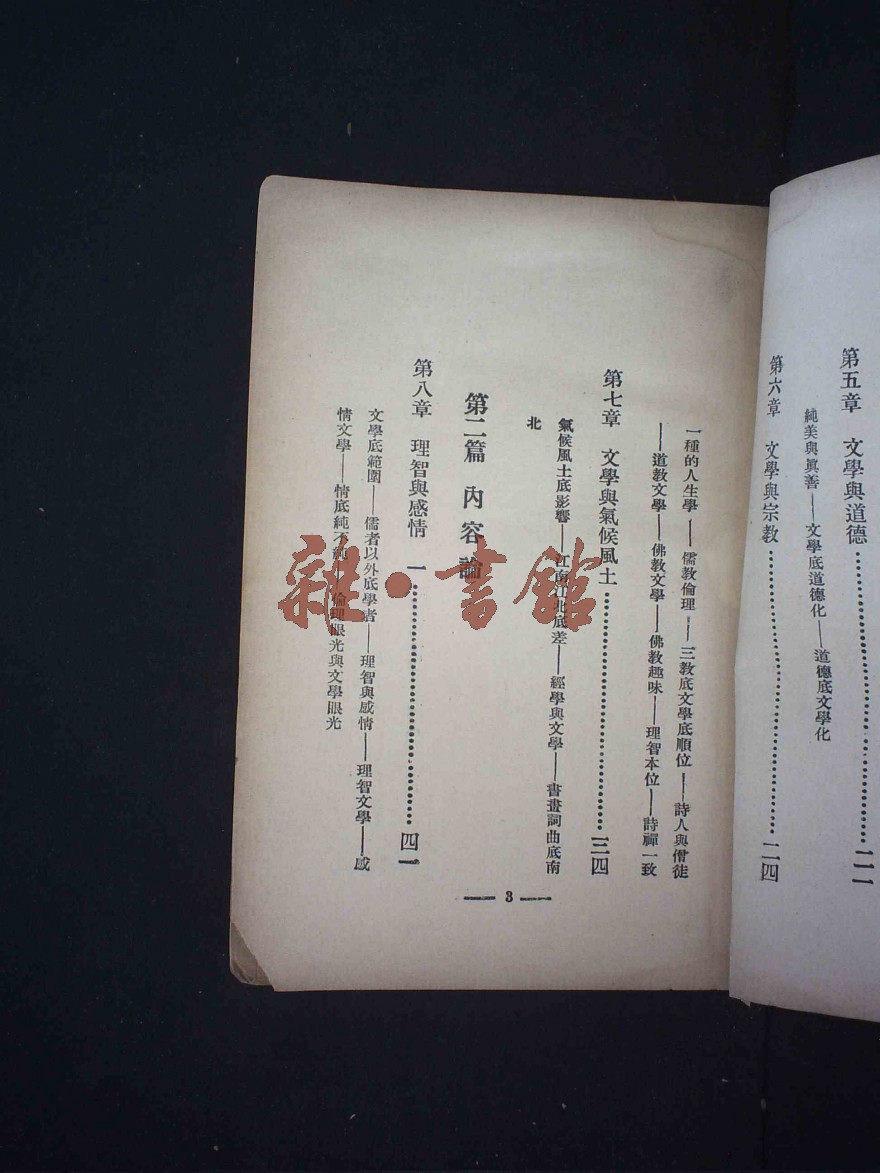 第五章　文學與道德……二一
純美與眞善——文學底道德化——道德底文學化
第六章　文學與宗教……二四
一種的人生學——儒教倫理——三教底文學底順位——詩人與僧徒
——道教文學——佛教文學——佛教趣味——理智本位——詩禪一致
第七章　文學與氣候風土……三四
氣候風土底影響——江南江北底差——經學與文學——書畫詞曲底南
北
第二篇　內容論
第八章　理智與感情　一……四一
文學底範圍——儒者以外底學者——理智與感情——理智文學——感
情文學——情底純不純——倫理眼光與文學眼光
— 3 —
雜·書館